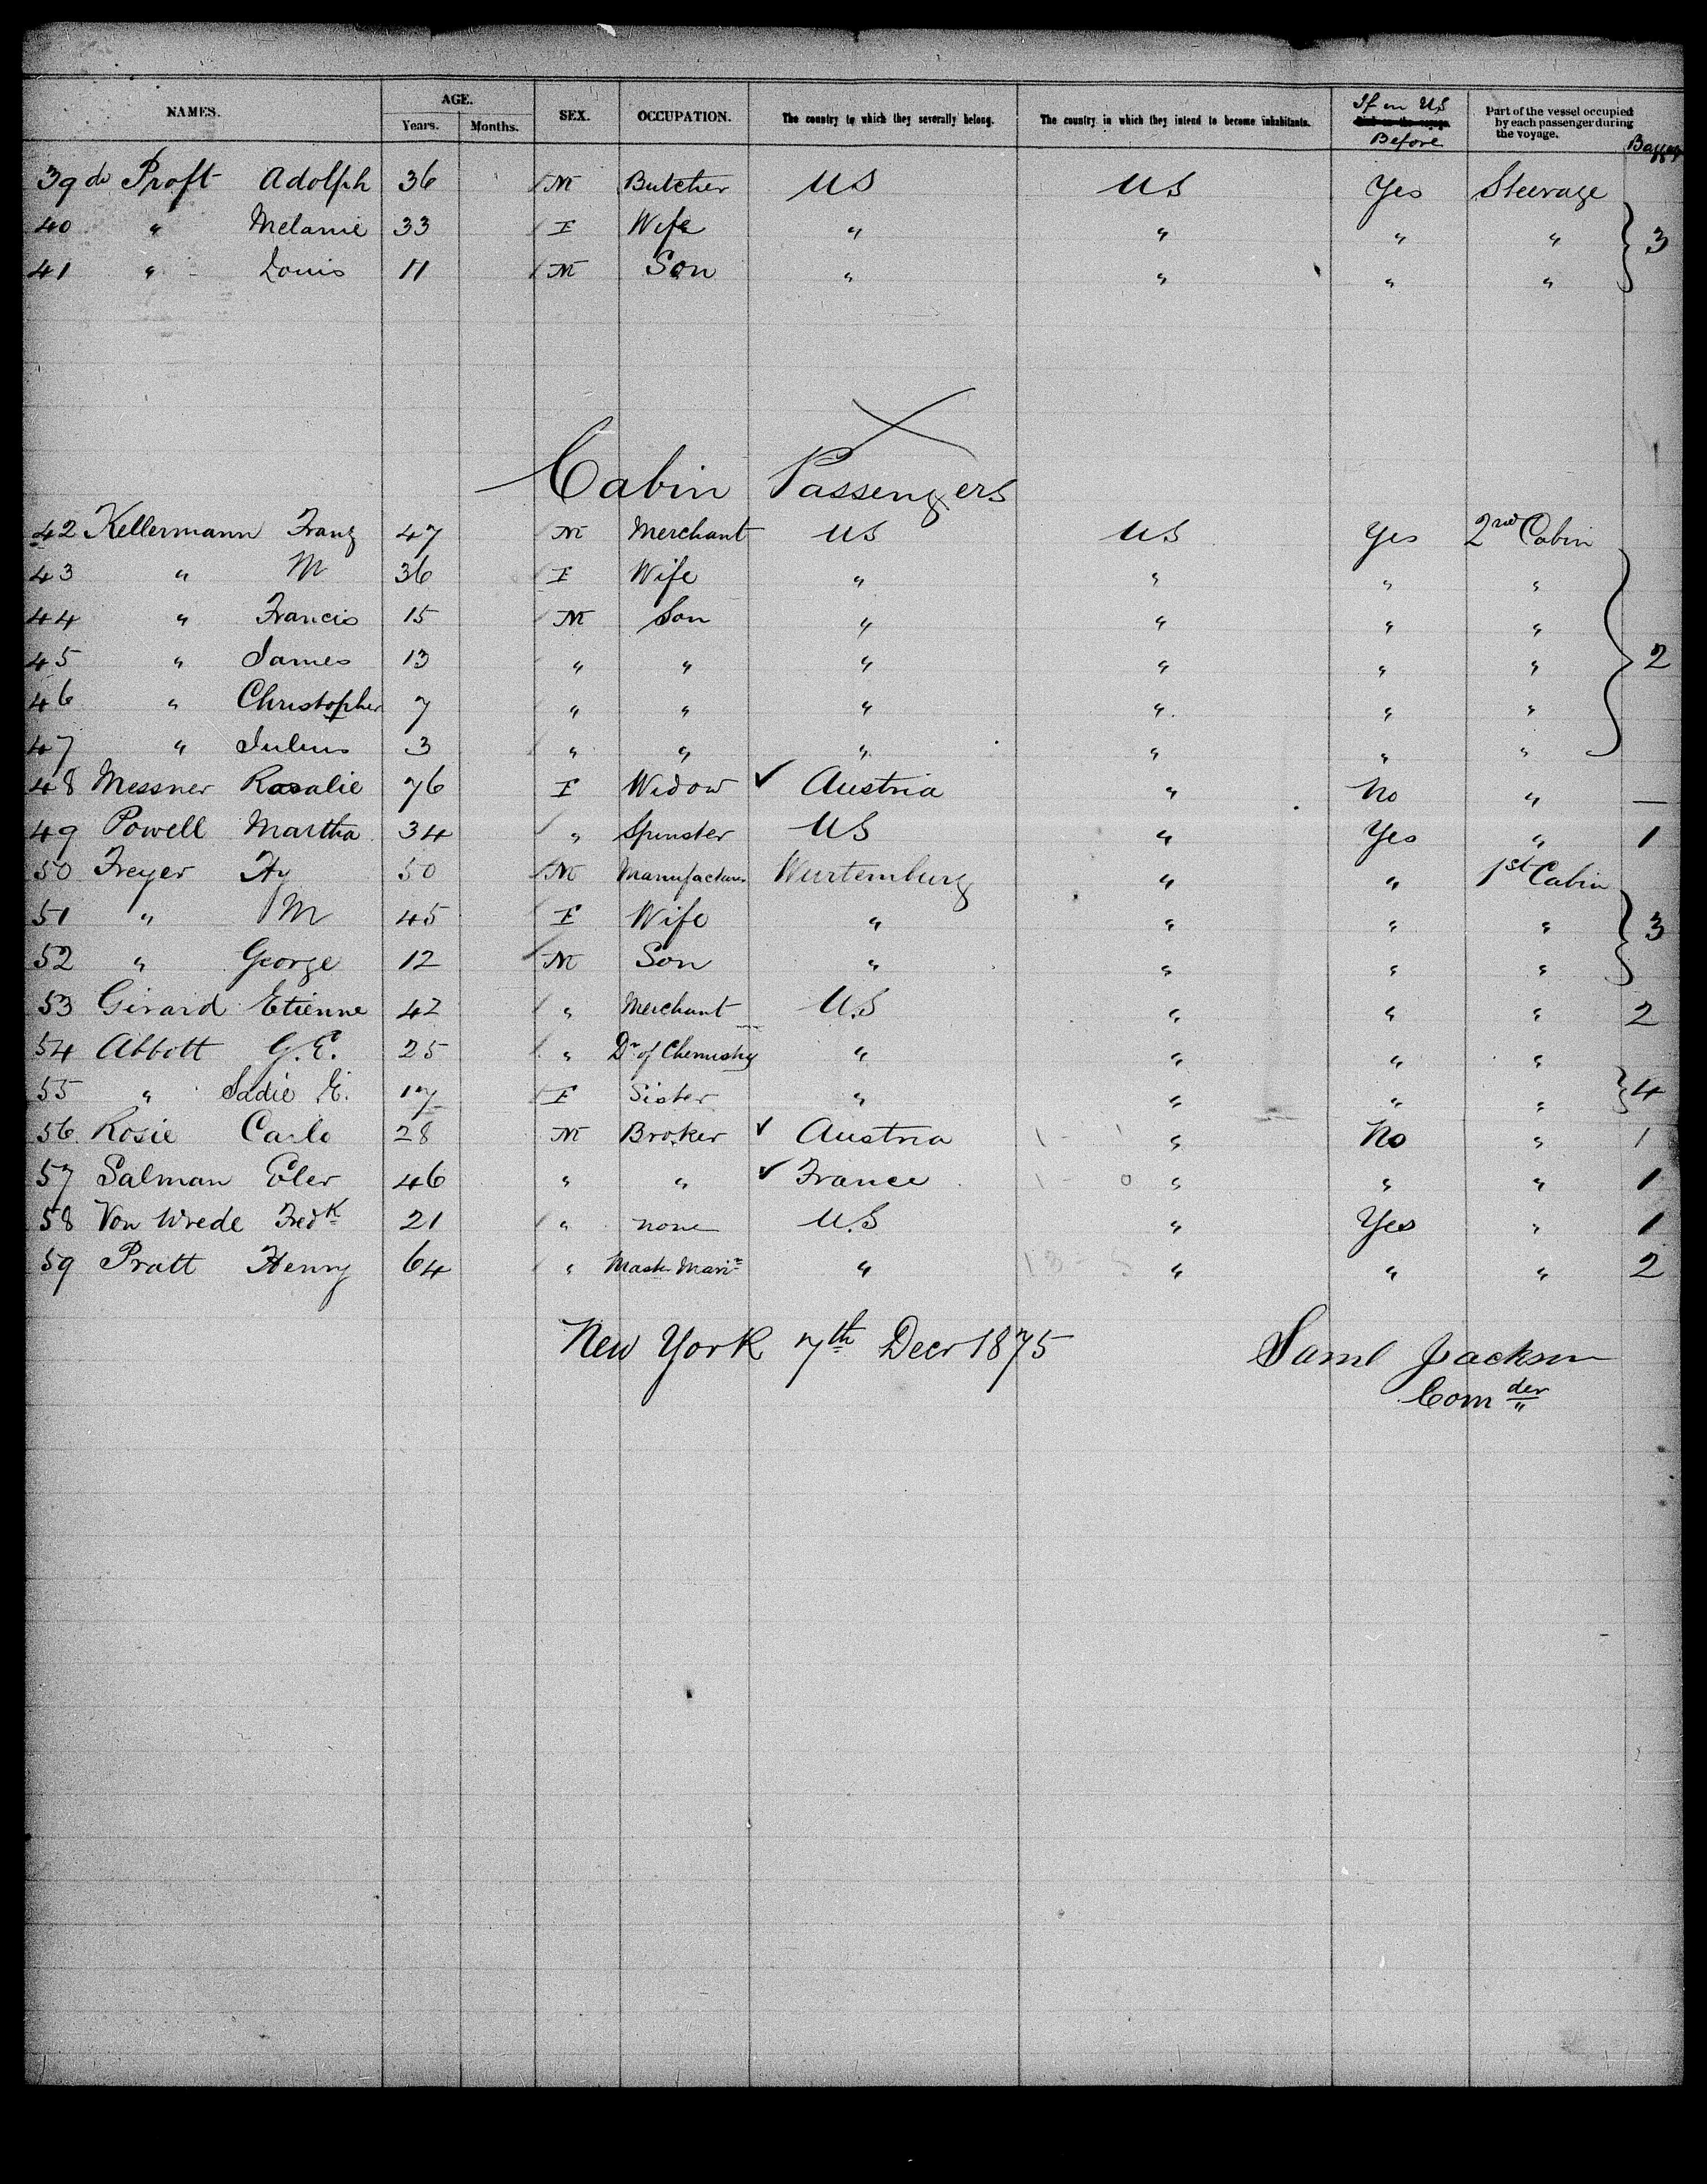 NAMES. AGE. SEX. OCCUPATION. The country to which they severally belong. The country in which they intend to become inhabitants. If in US Before Part of the vessel occupied by each passenger during the voyage.
Years. Months.
39 de Proft Adolph 36 M Butcher US US Yes Steerage
40 " Melanie 33 F Wife " " " " 3
41 " Louis 11 M Son " " " "
Cabin Passengers
42 Kellermann Franz 47 M Merchant US US Yes 2nd Cabin
43 " M 36 F Wife " " " "
44 " Francis 15 M Son " " " "
45 " James 13 " " " " " " 2
46 " Christopher 7 " " " " " "
47 " Julius 3 " " " " " "
48 Messner Rosalie 76 F Widow ✓ Austria " No " —
49 Powell Martha 34 " Spinster US " Yes " 1
50 Freyer Hy 50 M Manufacturer Wurtemburg " " 1st Cabin
51 " M 45 F Wife " " " " 3
52 " George 12 M Son " " " "
53 Girard Etienne 42 " Merchant U.S " " " 2
54 Abbott G.E. 25 " Dr of Chemistry " " " "
55 " Sadie E. 17 F Sister " " " " 4
56 Rosie Carlo 28 M Broker ✓ Austria " No " 1
57 Salman 46 " " ✓ France " " " 1
58 Von Wrede Fredk 21 " none U.S " Yes " 1
59 Pratt Henry 64 " Mastr Marir " " " " 2
New York 7th Decr 1875 Saml Jackson
Comder